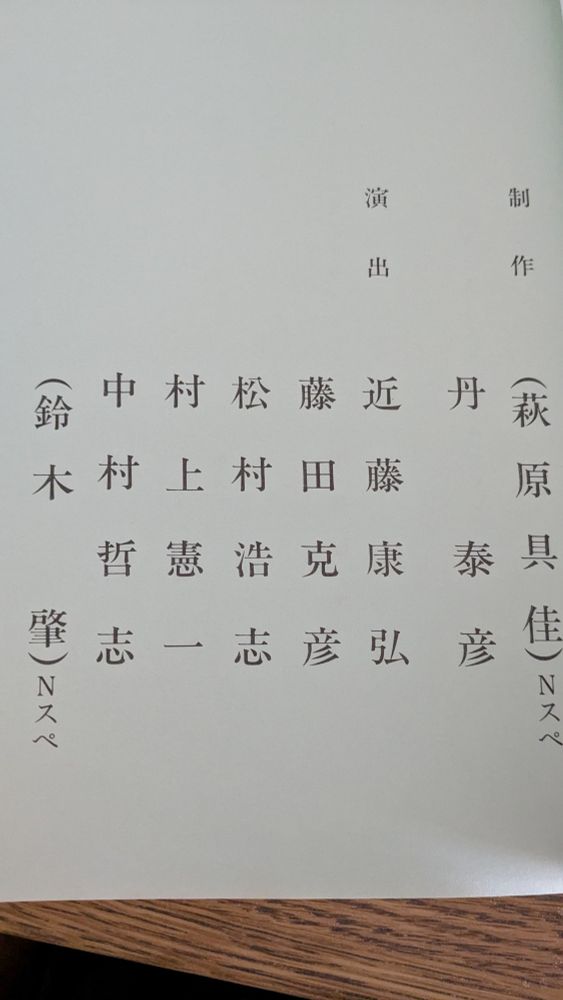 制作
(萩原具佳)Nスペ
丹泰彦
演出
近藤康弘
藤田克彦
松村浩志
村上憲一
中村哲志
(鈴木肇)Nスペ